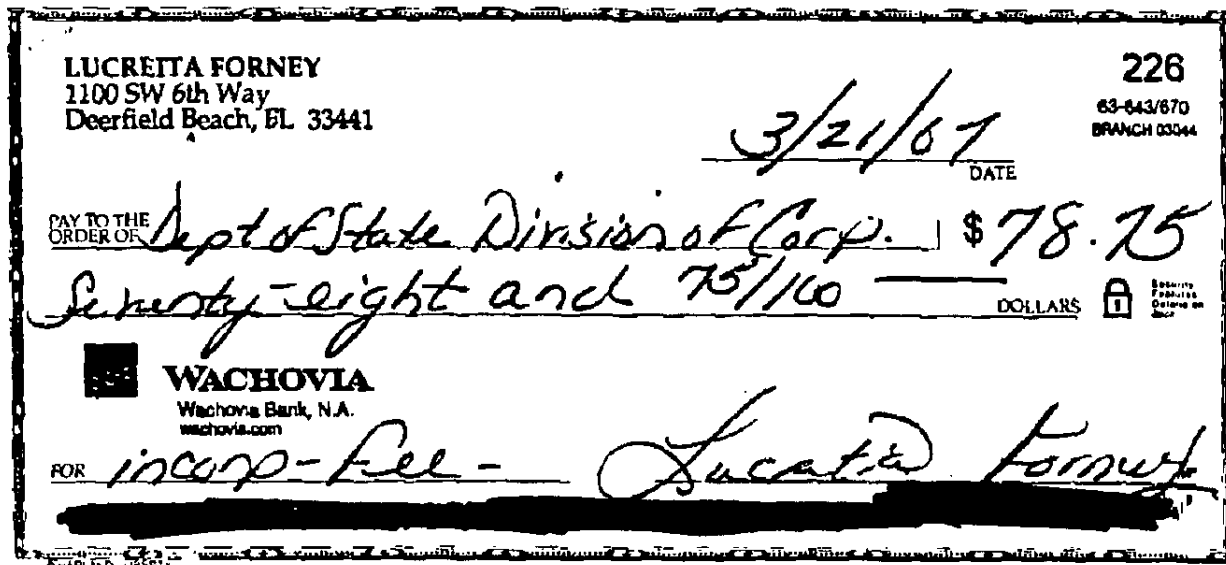 LUCREITA FORNEY
1100 SW 6th Way
Deerfield Beach, FL 33441
226
63-643/670
BRANCH 03044
3/21/07
DATE
PAY TO THE
ORDER OF Dept of State Division of Corp. $ 78.75
Seventy-eight and 75/100 DOLLARS
Security
Features
Details on
Back
WACHOVIA
Wachovia Bank, N.A.
wachovia.com
FOR incorp-fee- Lucretia Forney